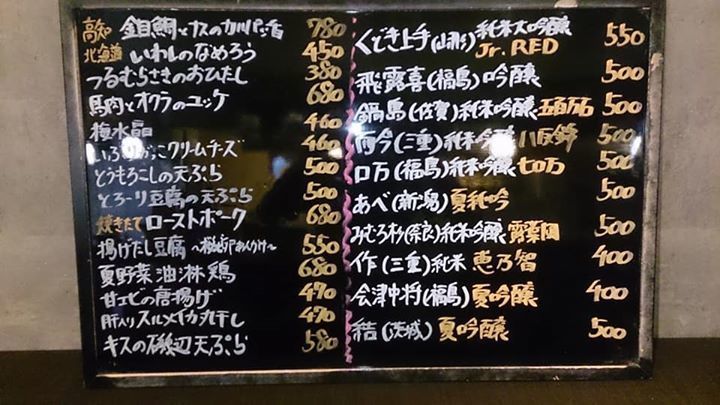 高知 金目鯛とナスのカルパッチョ 780
北海道 いわしのなめろう 450
つるむらさきのおひたし 380
馬肉とオクラのユッケ 680
梅水晶 460
いぶりがっこクリームチーズ 460
とうもろこしの天ぷら 500
とろーり豆腐の天ぷら 500
焼きたて ローストポーク 680
揚げだし豆腐 あんかけ〜 550
夏野菜油淋鶏 680
甘エビの唐揚げ 490
肝入りスルメイカ丸干し 470
キスの磯辺天ぷら 580
くどき上手(山形)純米大吟醸 Jr. RED 550
飛露喜(福島)吟醸 500
鍋島(佐賀)純米吟醸 五百万石 500
而今(三重)純米吟醸 八反錦 500
ロ万(福島)純米吟醸 七ロ万 500
あべ(新潟)夏純吟 500
みむろ杉(奈良)純米吟醸 露葉風 500
作(三重)純米 恵乃智 400
会津中将(福島)夏吟醸 400
結(茨城)夏吟醸 500